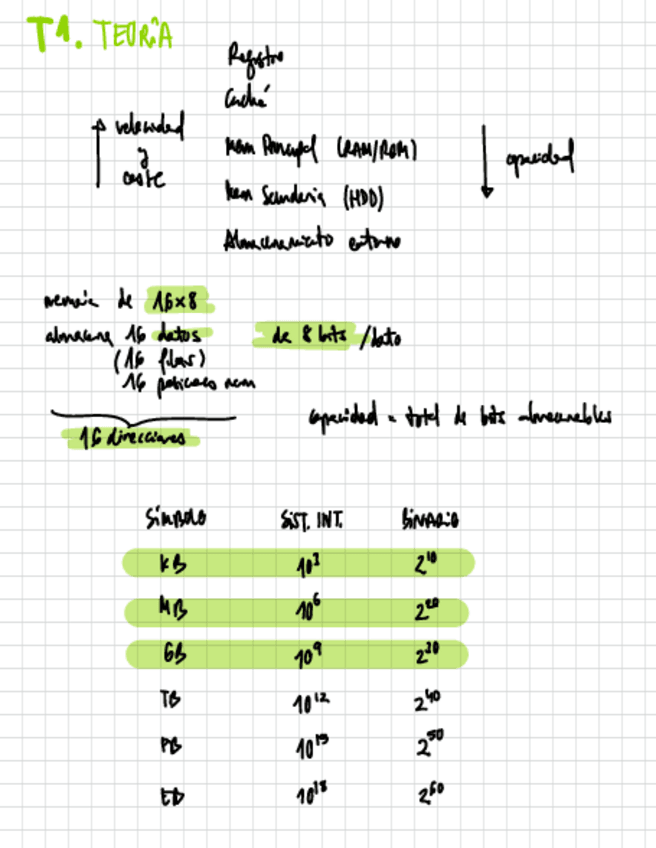 T1. TEORÍA
Registro
Caché
↑ velocidad
y
coste
Mem Principal (RAM/ROM)
↓ capacidad
Mem Secundaria (HDD)
Almacenamiento externo
memoria de 16x8
almacena 16 datos de 8 bits /dato
(16 filas)
16 posiciones mem
16 direcciones
capacidad = total de bits almacenables
SÍMBOLO SIST. INT. BINARIO
KB 10³ 2¹⁰
MB 10⁶ 2²⁰
GB 10⁹ 2³⁰
TB 10¹² 2⁴⁰
PB 10¹⁵ 2⁵⁰
EB 10¹⁸ 2⁶⁰